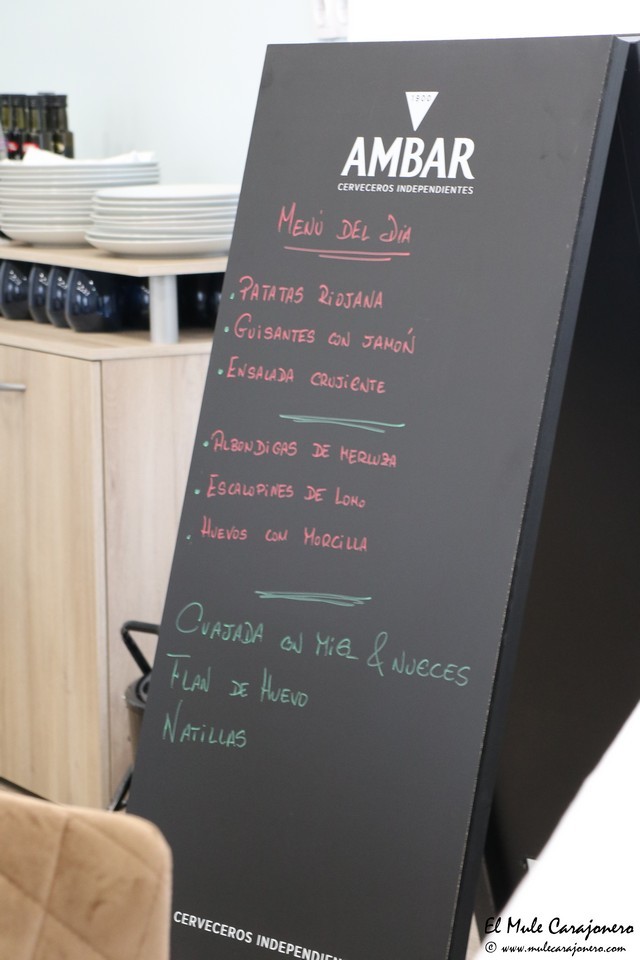 1900
AMBAR
CERVECEROS INDEPENDIENTES
MENÚ DEL DÍA
· PATATAS RIOJANA
· GUISANTES CON JAMÓN
· ENSALADA CRUJIENTE
· ALBONDIGAS DE MERLUZA
· ESCALOPINES DE LOMO
· HUEVOS CON MORCILLA
CUAJADA CON MIEL & NUECES
FLAN DE HUEVO
NATILLAS
CERVECEROS INDEPENDIEN
El Mule Carajonero
© www.mulecarajonero.com